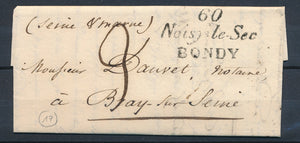 (Seine & marne)
60
Noisy-le-Sec
BONDY
Monsieur Dauvet Notaire
à Bray-sur-Seine
17